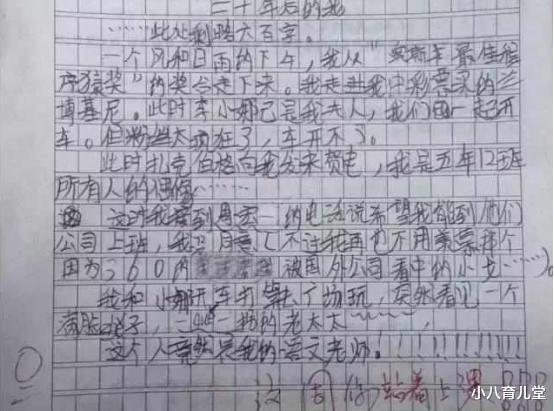 三十年后的我
……此处剩略六百字。
一个风和日雨的下午，我从“奥斯卡最佳程
序猿奖”的奖台走下来。我走进我中彩票买的兰
博基尼。此时李小娜已是我夫人，我们俩一起开
车。但粉丝太疯狂了，车开不了。
此时扎克伯格向我发来贺电，我是五年12班
所有人的偶像……
这时我接到周 的电话说希望我能到他们
公司上班，我 同意，不过我再也不用
因为360的 被国外公司看中的小
我和小娜开车 了 玩，突然看见一个
满脸 子，一 一 的老太太……，
这个人竟然是我的语文老师！！！！！！！！！！
这周你站着上课
小八育儿堂